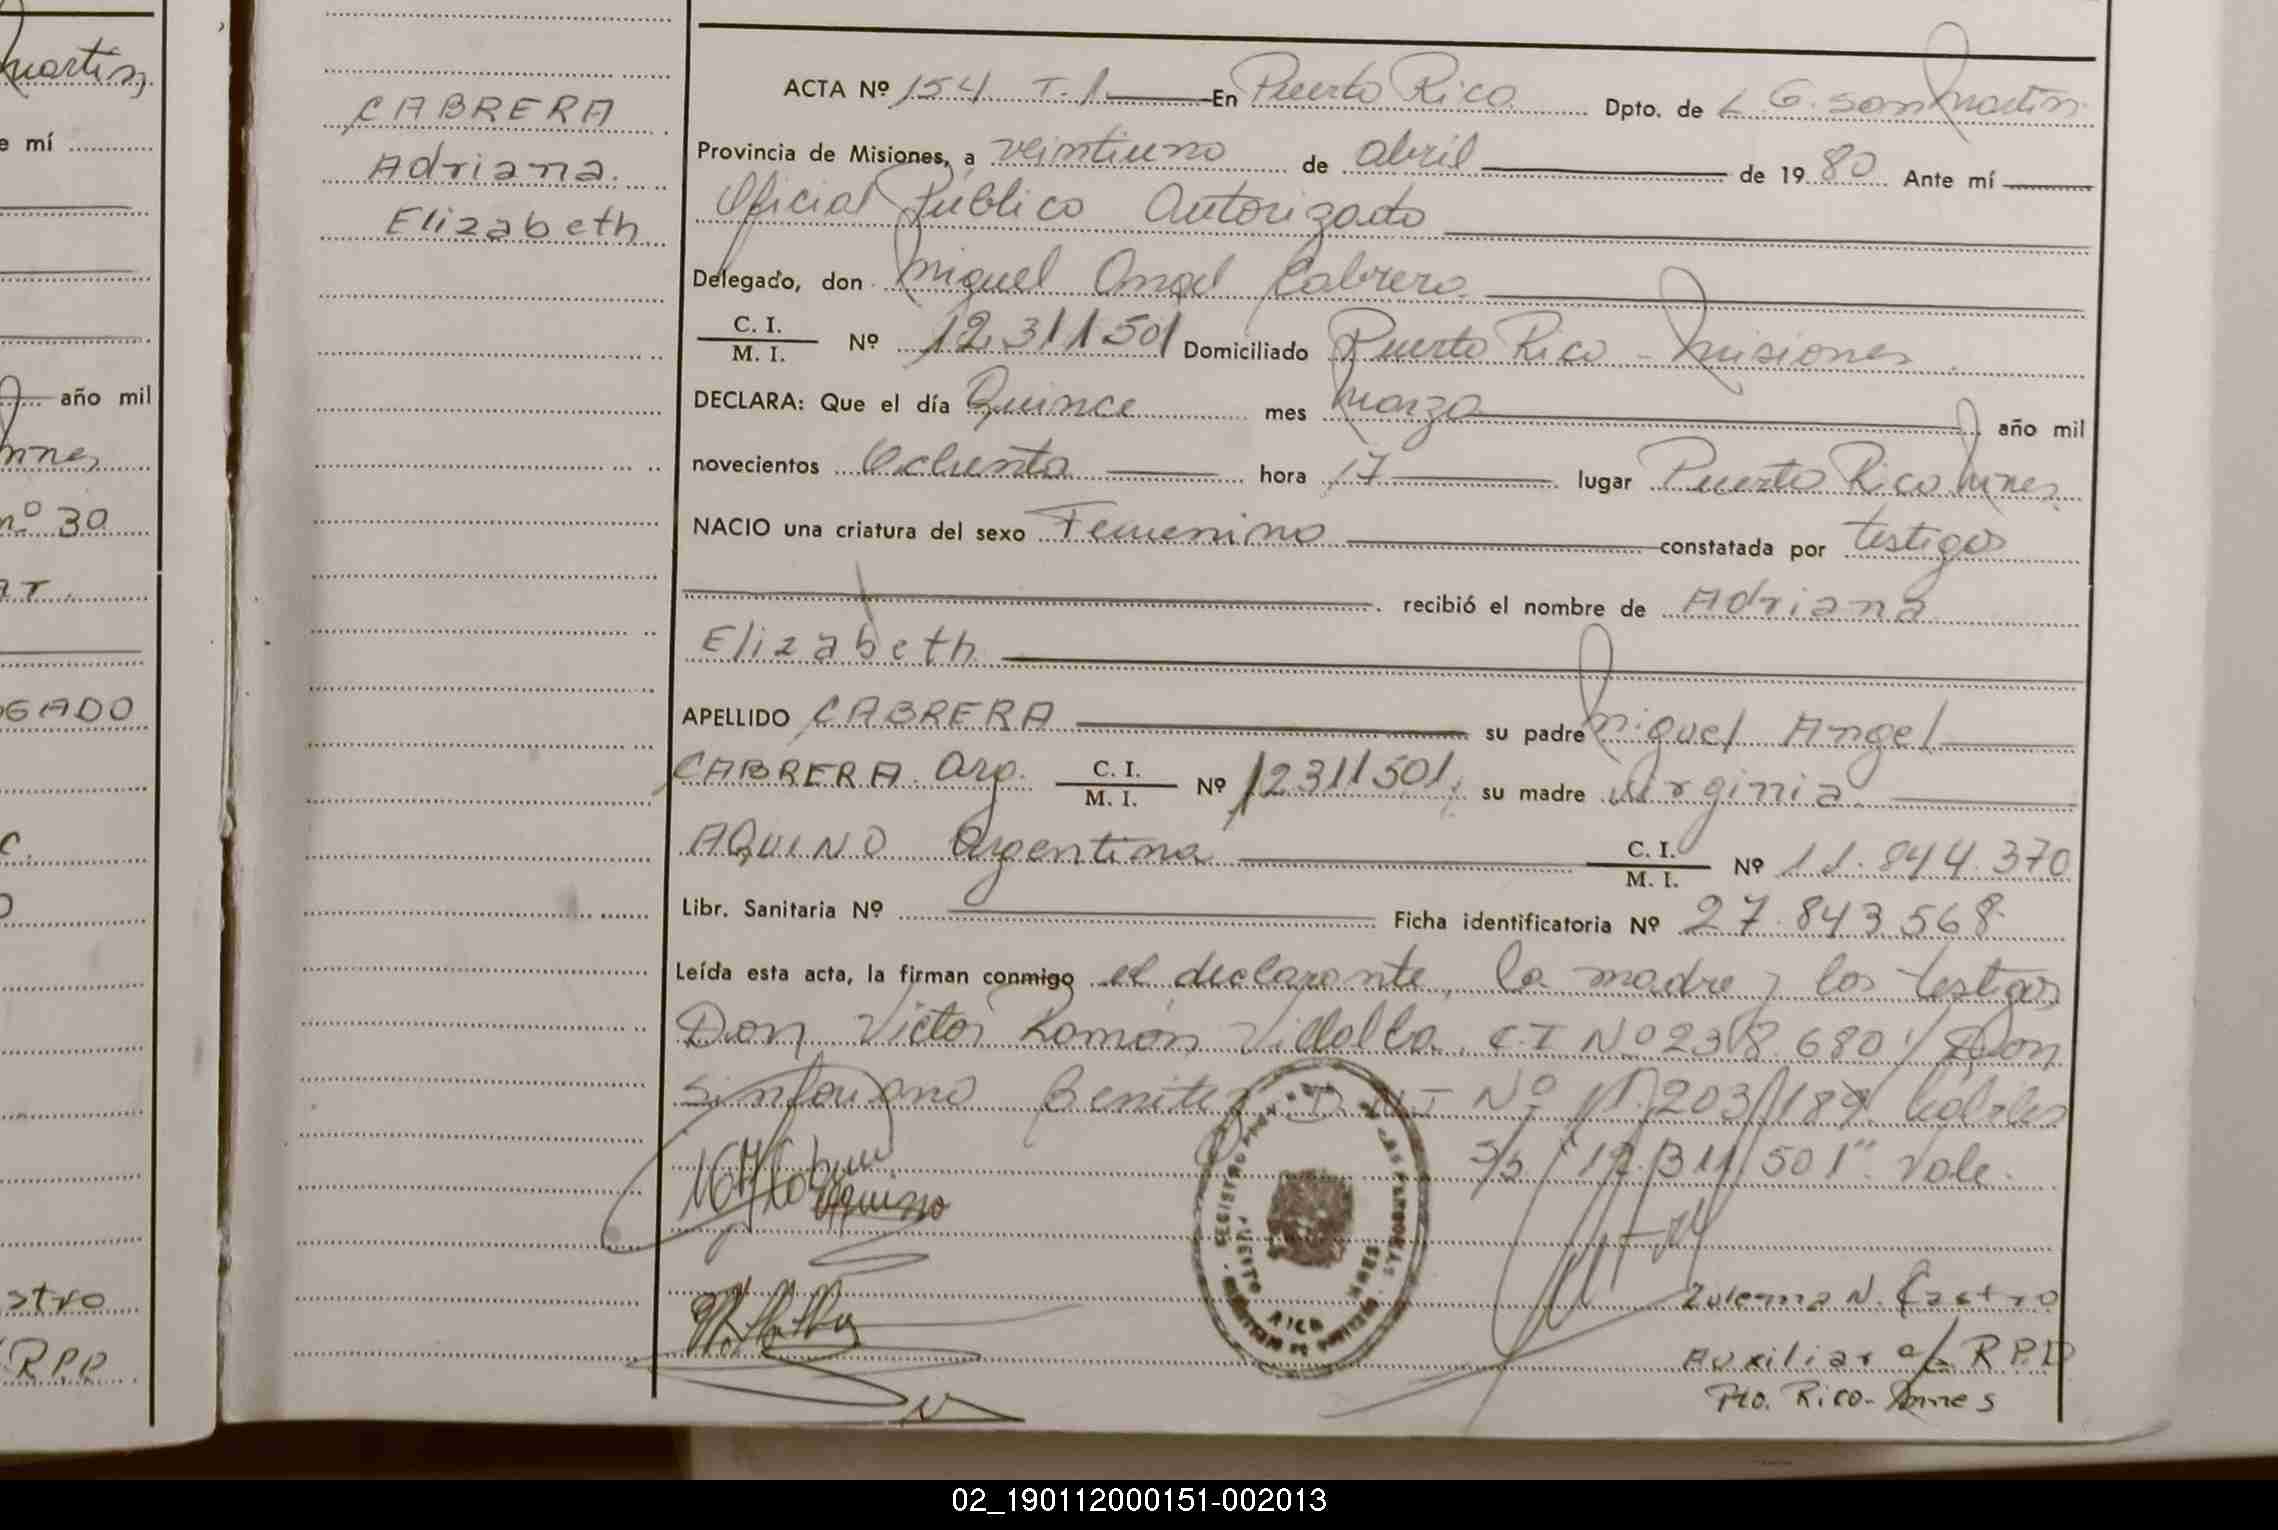 martin
e mí
año mil
nnes
nº 30
ar.
GADO
c.
o
stro
R.P.P.
CABRERA
Adriana
Elizabeth
ACTA Nº 154 T. 1 En Puerto Rico Dpto. de L G. San Martin
Provincia de Misiones, a veintiuno de abril de 1980 Ante mí
Oficial Público Autorizado
Delegado, don Miguel Angel Cabrera
C. I.
M. I. Nº 12.311501 Domiciliado Puerto Rico - Misiones
DECLARA: Que el día Quince mes Marzo año mil
novecientos Ochenta hora 17 lugar Puerto Rico Mnes.
NACIO una criatura del sexo Femenino constatada por testigos
recibió el nombre de Adriana
Elizabeth
APELLIDO CABRERA su padre Miguel Angel
CABRERA. Arg. C. I. M. I. Nº 12311501, su madre Virginia
AQUINO Argentina C. I. M. I. Nº 11.844.370
Libr. Sanitaria Nº Ficha identificatoria Nº 27.843.568
Leída esta acta, la firman conmigo el declarante, la madre y los testigos
Don Victor Ramón Villalba C.I Nº 238.680 y Don
Sinforiano Benitez D.N.I Nº 11.203.189. hábiles
S/b. "12.311.501". Vale.
Aquino
REGISTRO
DE LAS PERSONAS
PUERTO RICO
MISIONES
Zulema N. Castro
Auxiliar a/c R.P.D
Pto. Rico - Mnes
02_190112000151-002013